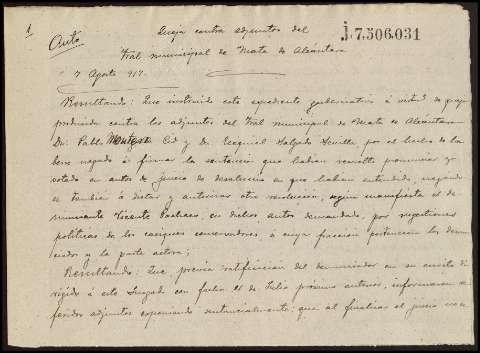 1
Queja contra adjuntos del
J.7.506.031
Auto
Tral municipal de Mata de Alcántara
7 Agosto 917.
Resultando: Que instruido este expediente gubernativo á virtud de queja
producida contra los adjuntos del Tral municipal de Mata de Alcántara
Dn. Pablo Montero Cid y Dn. Ezequiel Salgado Sevilla, por el hecho de ha
berse negado á firmar la sentencia que habían resuelto pronunciar y
votado en autos de juicio de desahucio en que habían entendido, negándo
se también á dictar y autorizar otra resolución, según manifiesta el de
nunciante Vicente Pacheco, en dichos autos demandado, por sugestiones
políticas de los caciques conservadores, á cuya fracción pertenecen los denun
ciados y la parte actora;
Resultando: Que, previa ratificación del denunciador en su escrito di
rigido á este Juzgado con fecha de Julio próximo anterior, informaron
feridos adjuntos exponiendo sustancialmente: que al finalizar el juicio